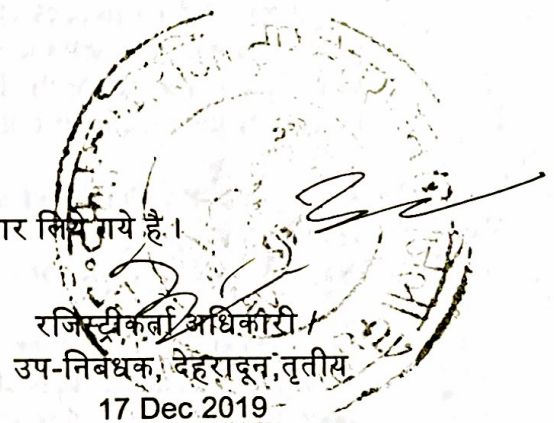 ार लिये गये है।
रजिस्ट्रीकर्ता अधिकारी /
उप-निबंधक, देहरादून,तृतीय
17 Dec 2019